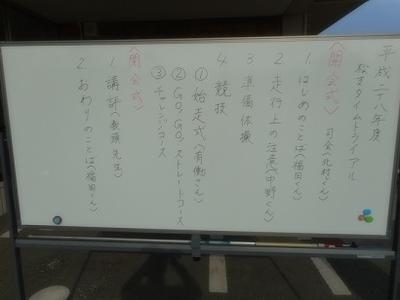 平成二十八年度
タイムトライアル
〈開会式〉 司会〈北村くん〉
1. はじめのことば〈福田くん〉
2. 走行上の注意〈中野くん〉
3. 準備体操
4. 競技
① 始走式〈有働さん〉
② GO.GO.ストレートコース
③ チャレンジコース
〈閉会式〉
1. 講評〈教頭先生〉
2. おわりのことば〈福田くん〉